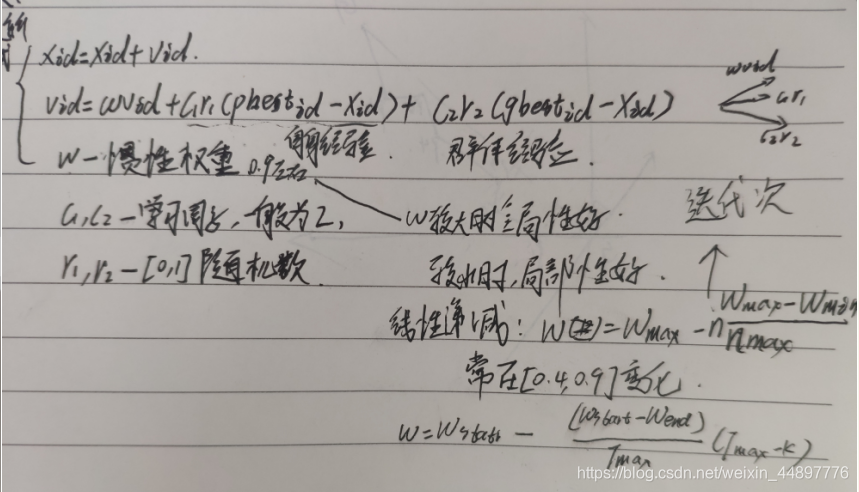 xid=xid+vid.
vid=wvid+c₁r₁(pbestid-xid)+ c₂r₂(gbestid-xid)
wvid
c₁r₁
c₂r₂
自身经验. 群体经验.
w-惯性权重 0.9左右
c₁,c₂-学习因子,一般为2,
r₁,r₂-[0,1]随机数.
w较大时全局性好.
较小时,局部性好.
迭代次
线性递减: w()=wmax-n(wmax-wmin)/nmax
常在[0.4,0.9]变化.
w=wstart-(wstart-wend)/Tmax(Tmax-k)
https://blog.csdn.net/weixin_44897776